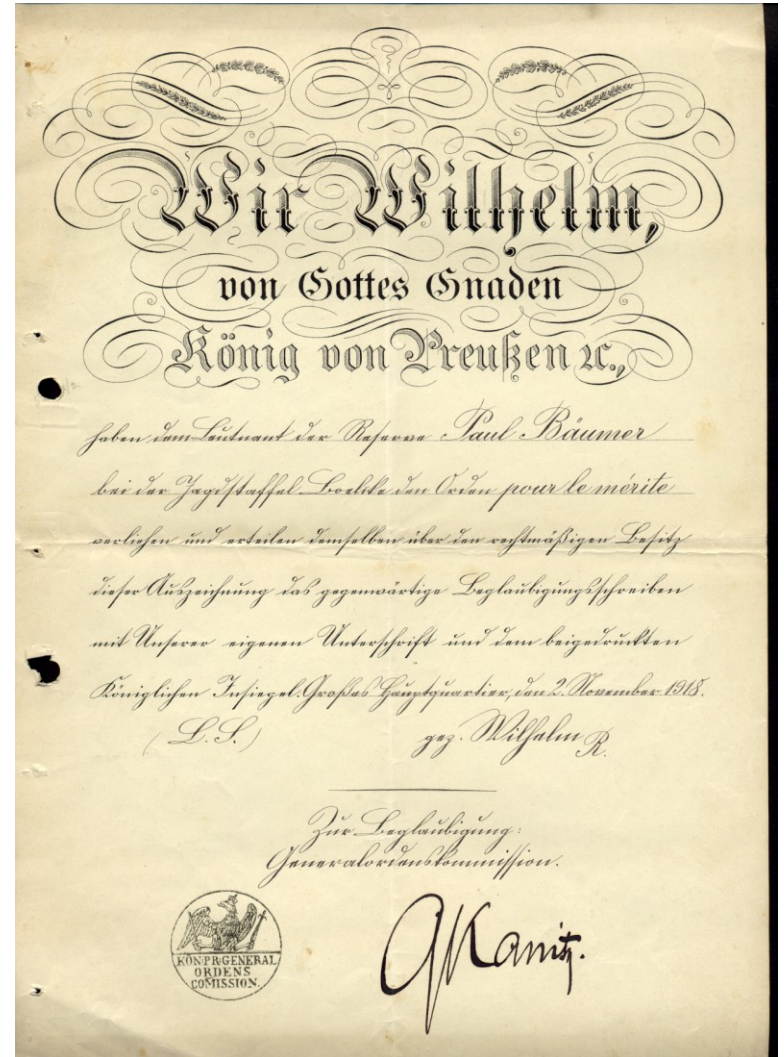 Wir Wilhelm,
von Gottes Gnaden
König von Preußen ꝛc.,
haben dem Leutnant der Reserve Paul Bäumer
bei der Jagdstaffel Boelcke den Orden pour le mérite
verliehen und erteilen demselben über den rechtmäßigen Besitz
dieser Auszeichnung das gegenwärtige Beglaubigungsschreiben
mit Unserer eigenen Unterschrift und dem beigedruckten
Königlichen Insiegel. Großes Hauptquartier, den 2. November 1918.
(L.S.) gez. Wilhelm R.
Zur Beglaubigung:
Generalordenskommission.
KÖN·PR·GENERAL
ORDENS
COMISSION.
GKanitz.